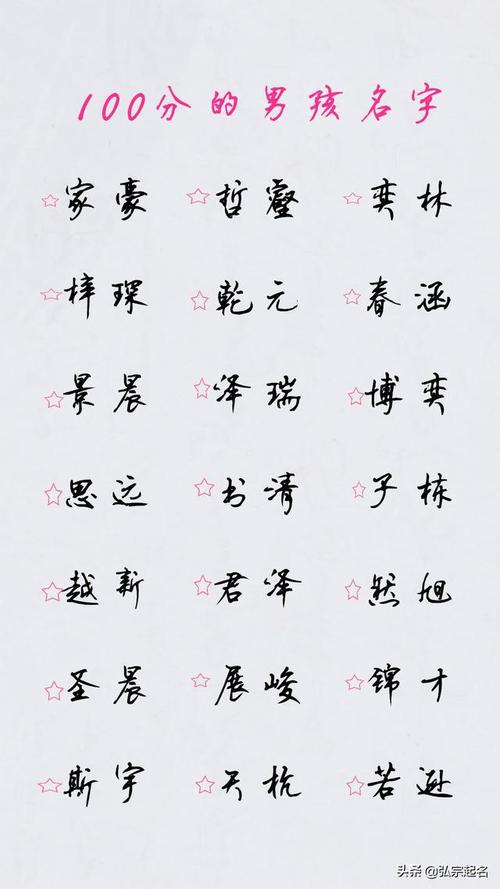 100分的男孩名字
☆家豪 ☆哲壑 ☆奕林
☆梓琛 ☆乾元 ☆春涵
☆景晨 ☆泽瑞 ☆博奕
☆思远 ☆书清 ☆子栋
☆越新 ☆君泽 ☆然旭
☆圣晨 ☆展峻 ☆锦才
☆斯宇 ☆天杭 ☆若逊
头条@弘宗起名